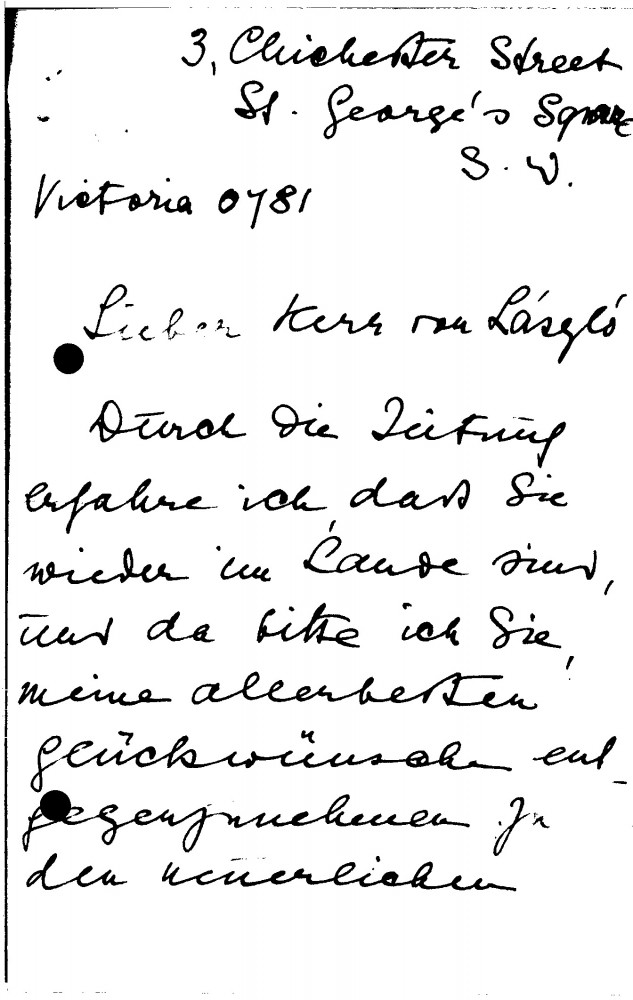 3, Chichester Street
St. George's Square
S. W.
Victoria 0781
Lieber Herr von László
Durch die Zeitung
erfahre ich, dass Sie
wieder im Lande sind,
und da bitte ich Sie,
meine allerbesten
Glückwünsche ent-
gegenzunehmen zu
den neuerlichen